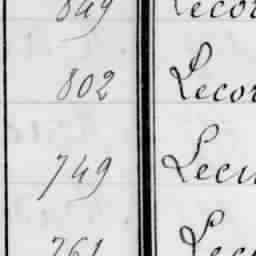 849 Lecor
802 Lecor
749 Lecu
761 Lec